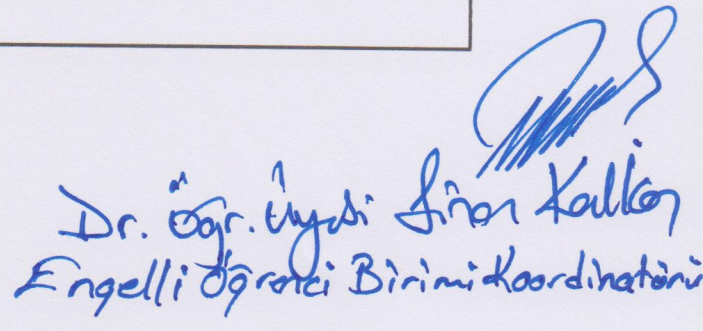 Dr. Öğr. Üyesi Sinan Kalkan
Engelli Öğrenci Birimi Koordinatörü